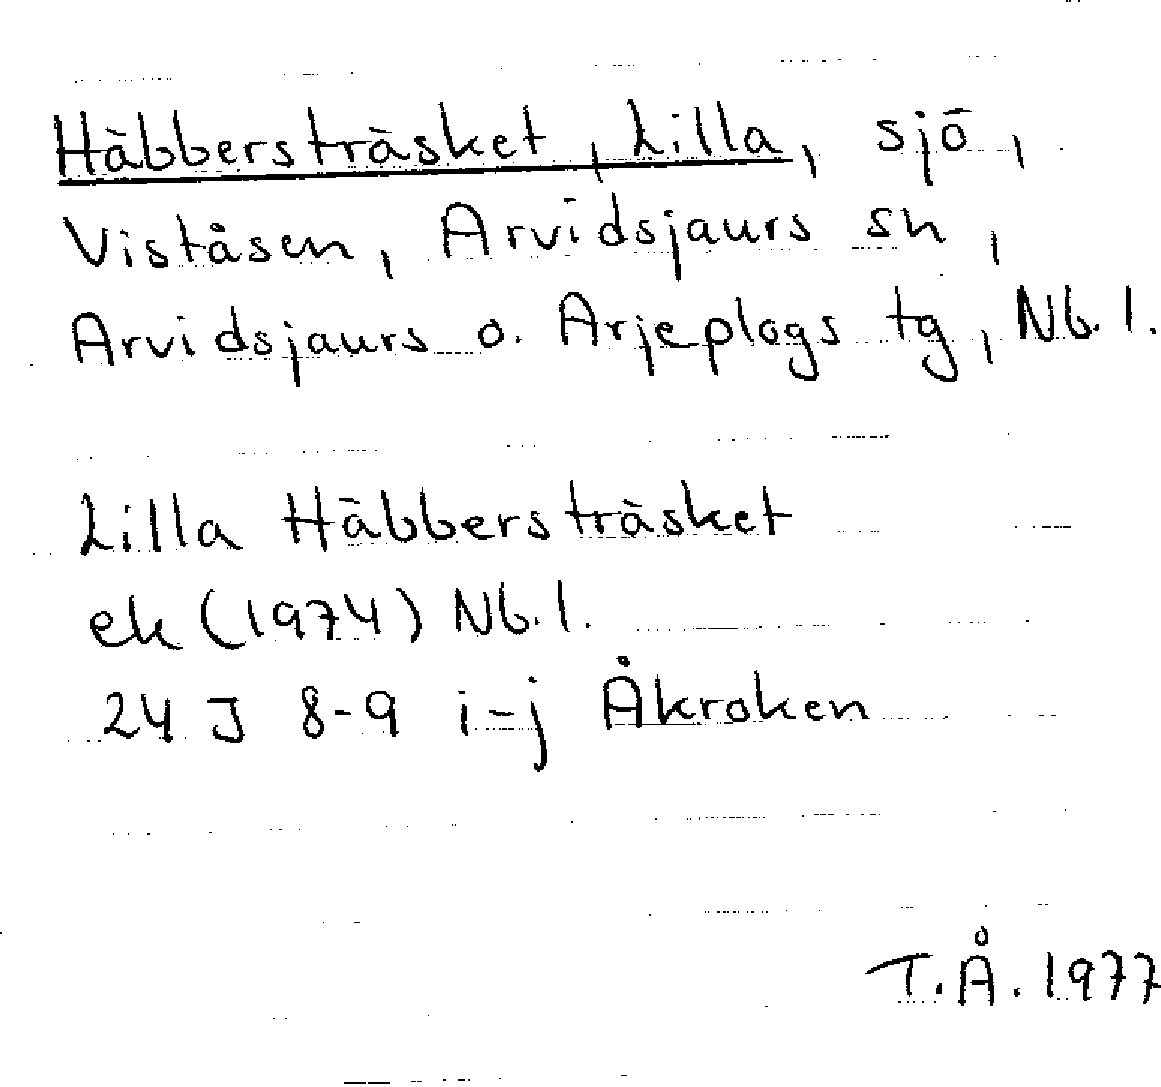 Häbbersträsket, Lilla, sjö,
Viståsen, Arvidsjaurs sn,
Arvidsjaurs o. Arjeplogs tg, Nb.l.
Lilla Häbbersträsket
ek (1974) Nb.l.
24 J 8-9 i-j Åkroken
T.Å. 1977